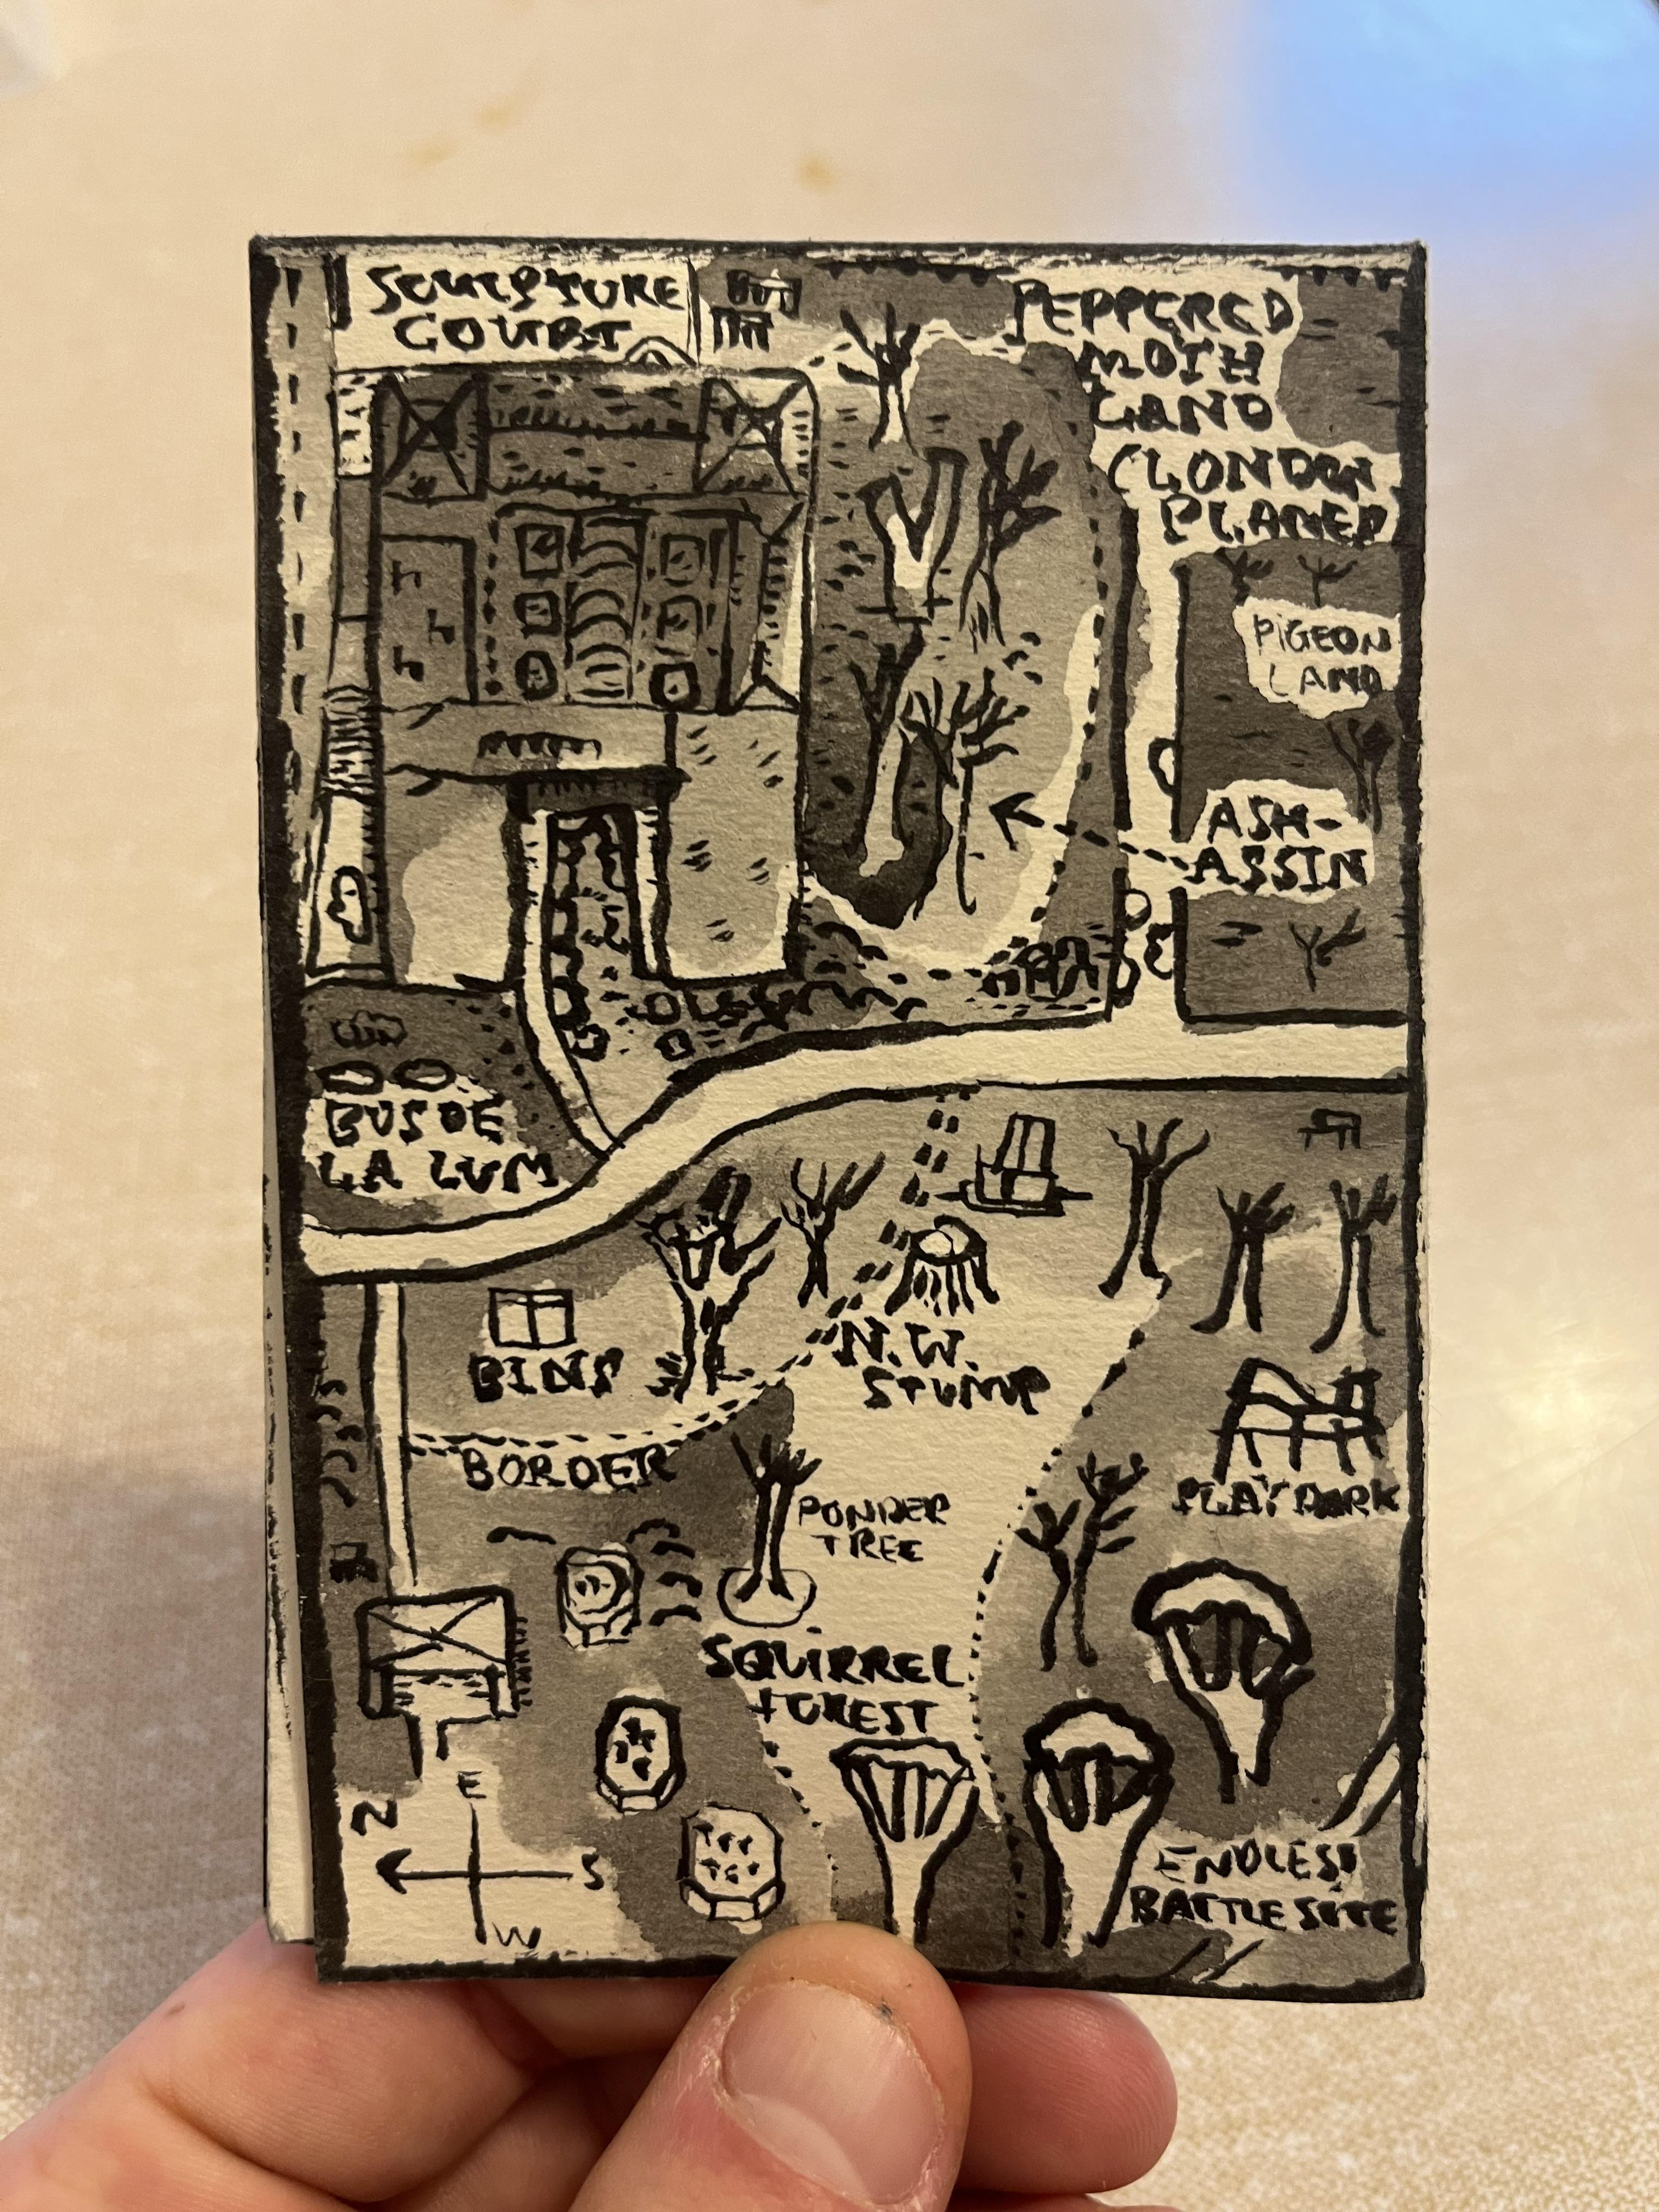 SCULPTURE
COURT
PEPPERED
MOTH
LAND
(LONDON
PLANE)
PIGEON
LAND
ASH-
ASSIN
BUS DE
LA LUM
BINS
N.W.
STUMP
BORDER
PLAY PARK
PONDER
TREE
SQUIRREL
FOREST
E
N
S
W
ENDLESS
BATTLE SITE